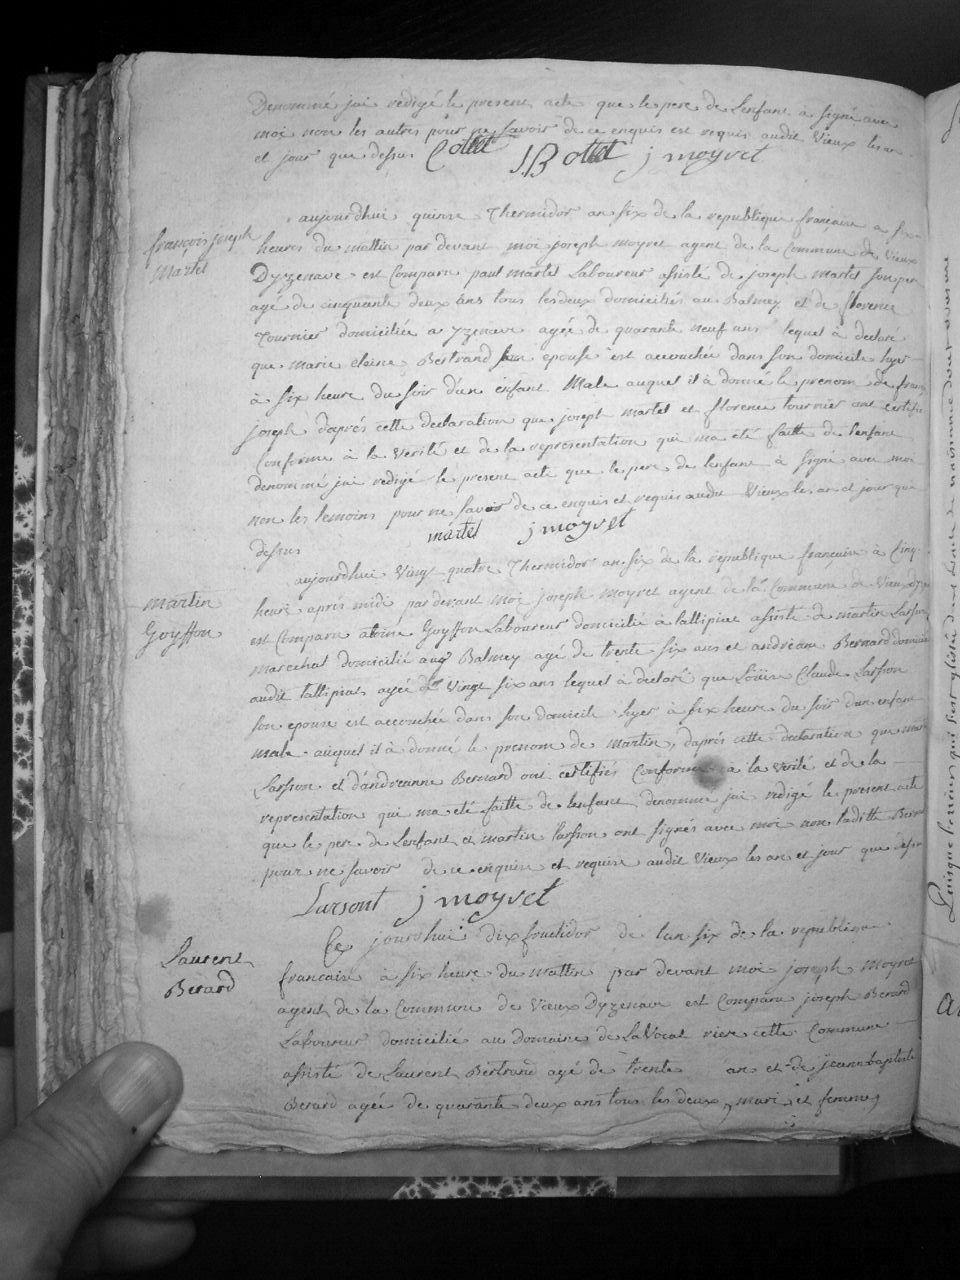 Denommé jai redigé le present acte que le pere de Lenfant à signé avec
moi non les autres pour ne savoir de ce enquis et requis audit Vieux les an
et jour que dessus Cottet J.B ottet j moyret
françois joseph
Martel
aujourdhui quinze Thermidor an six de la republique francaise a six
heures du mattin par devant moi joseph moyret agent de la Commune de Vieux
Dyzenave est Comparu paul martel Laboureur assisté de joseph martel son per
agé de cinquante deux ans tous lesdeux domiciliés au Balmey et de florence
Tournier domiciliée a yzenave agée de quarante neuf ans lequel à declaré
que marie Bertrand son epouse est accouchée dans son domicile hyer
à six heure du soir d'en enfant Male auquel il à donné le prenom de franç
joseph daprés cette declaration que joseph martel et florence tournier ont certifié
Conforme à la verité et de la representation qui ma été faitte de lenfant
denommé jai redigé le present acte que le pere de lenfant à signé avec moi
non les temoins pour ne savoir de ce enquis et requis audit Vieux les an et jour que
dessus martel j moyret
martin
Goyffon
aujourdhui Vingt quatre Thermidor an six de la republique françaire à Cinq
heure apres midi par devant moi joseph moyret agent de la Commune de Vieux dyze
est Comparu Goyffon Laboureur domicilié à tallipiat assisté de martin Larson
marechal domicilié aug Balmey agé de trente six ans et andréanne Bernard domicilié
audit tallipiat agée de Vingt six ans lequel à declaré que Loüise Claude Larsson
son epouse est accouchée dans son domicile hyer à six heure du soir dun enfant
male auquel il à donné le prenom de martin, daprés cette declaration que mar
Larsson et d'andréanne Bernard ont certifiés Conforme a la verité et de la
representation qui ma eté faitte de lenfant denommé jai redigé le present acte
que le pere de Lenfant et martin Larsson ont signés avec moi non laditte Berna
pour ne savoir de ce enquise et requise audit Vieux les an et jour que dessu
Larsont j moyret
Laurent
Berard
Ce jourdhui dix fructidor de lan six de la republique
francaise à six heure du mattin par devant moi joseph moyret
agent de la Commune de Vieux Dyzenave est Comparu joseph Berard
Laboureur domicilié au domaine de cette Commune
assisté de Laurent Bertrand agé de trente an et de jeanne baptiste
Berard agée de quarante deux ans tous les deux, mari et femme,